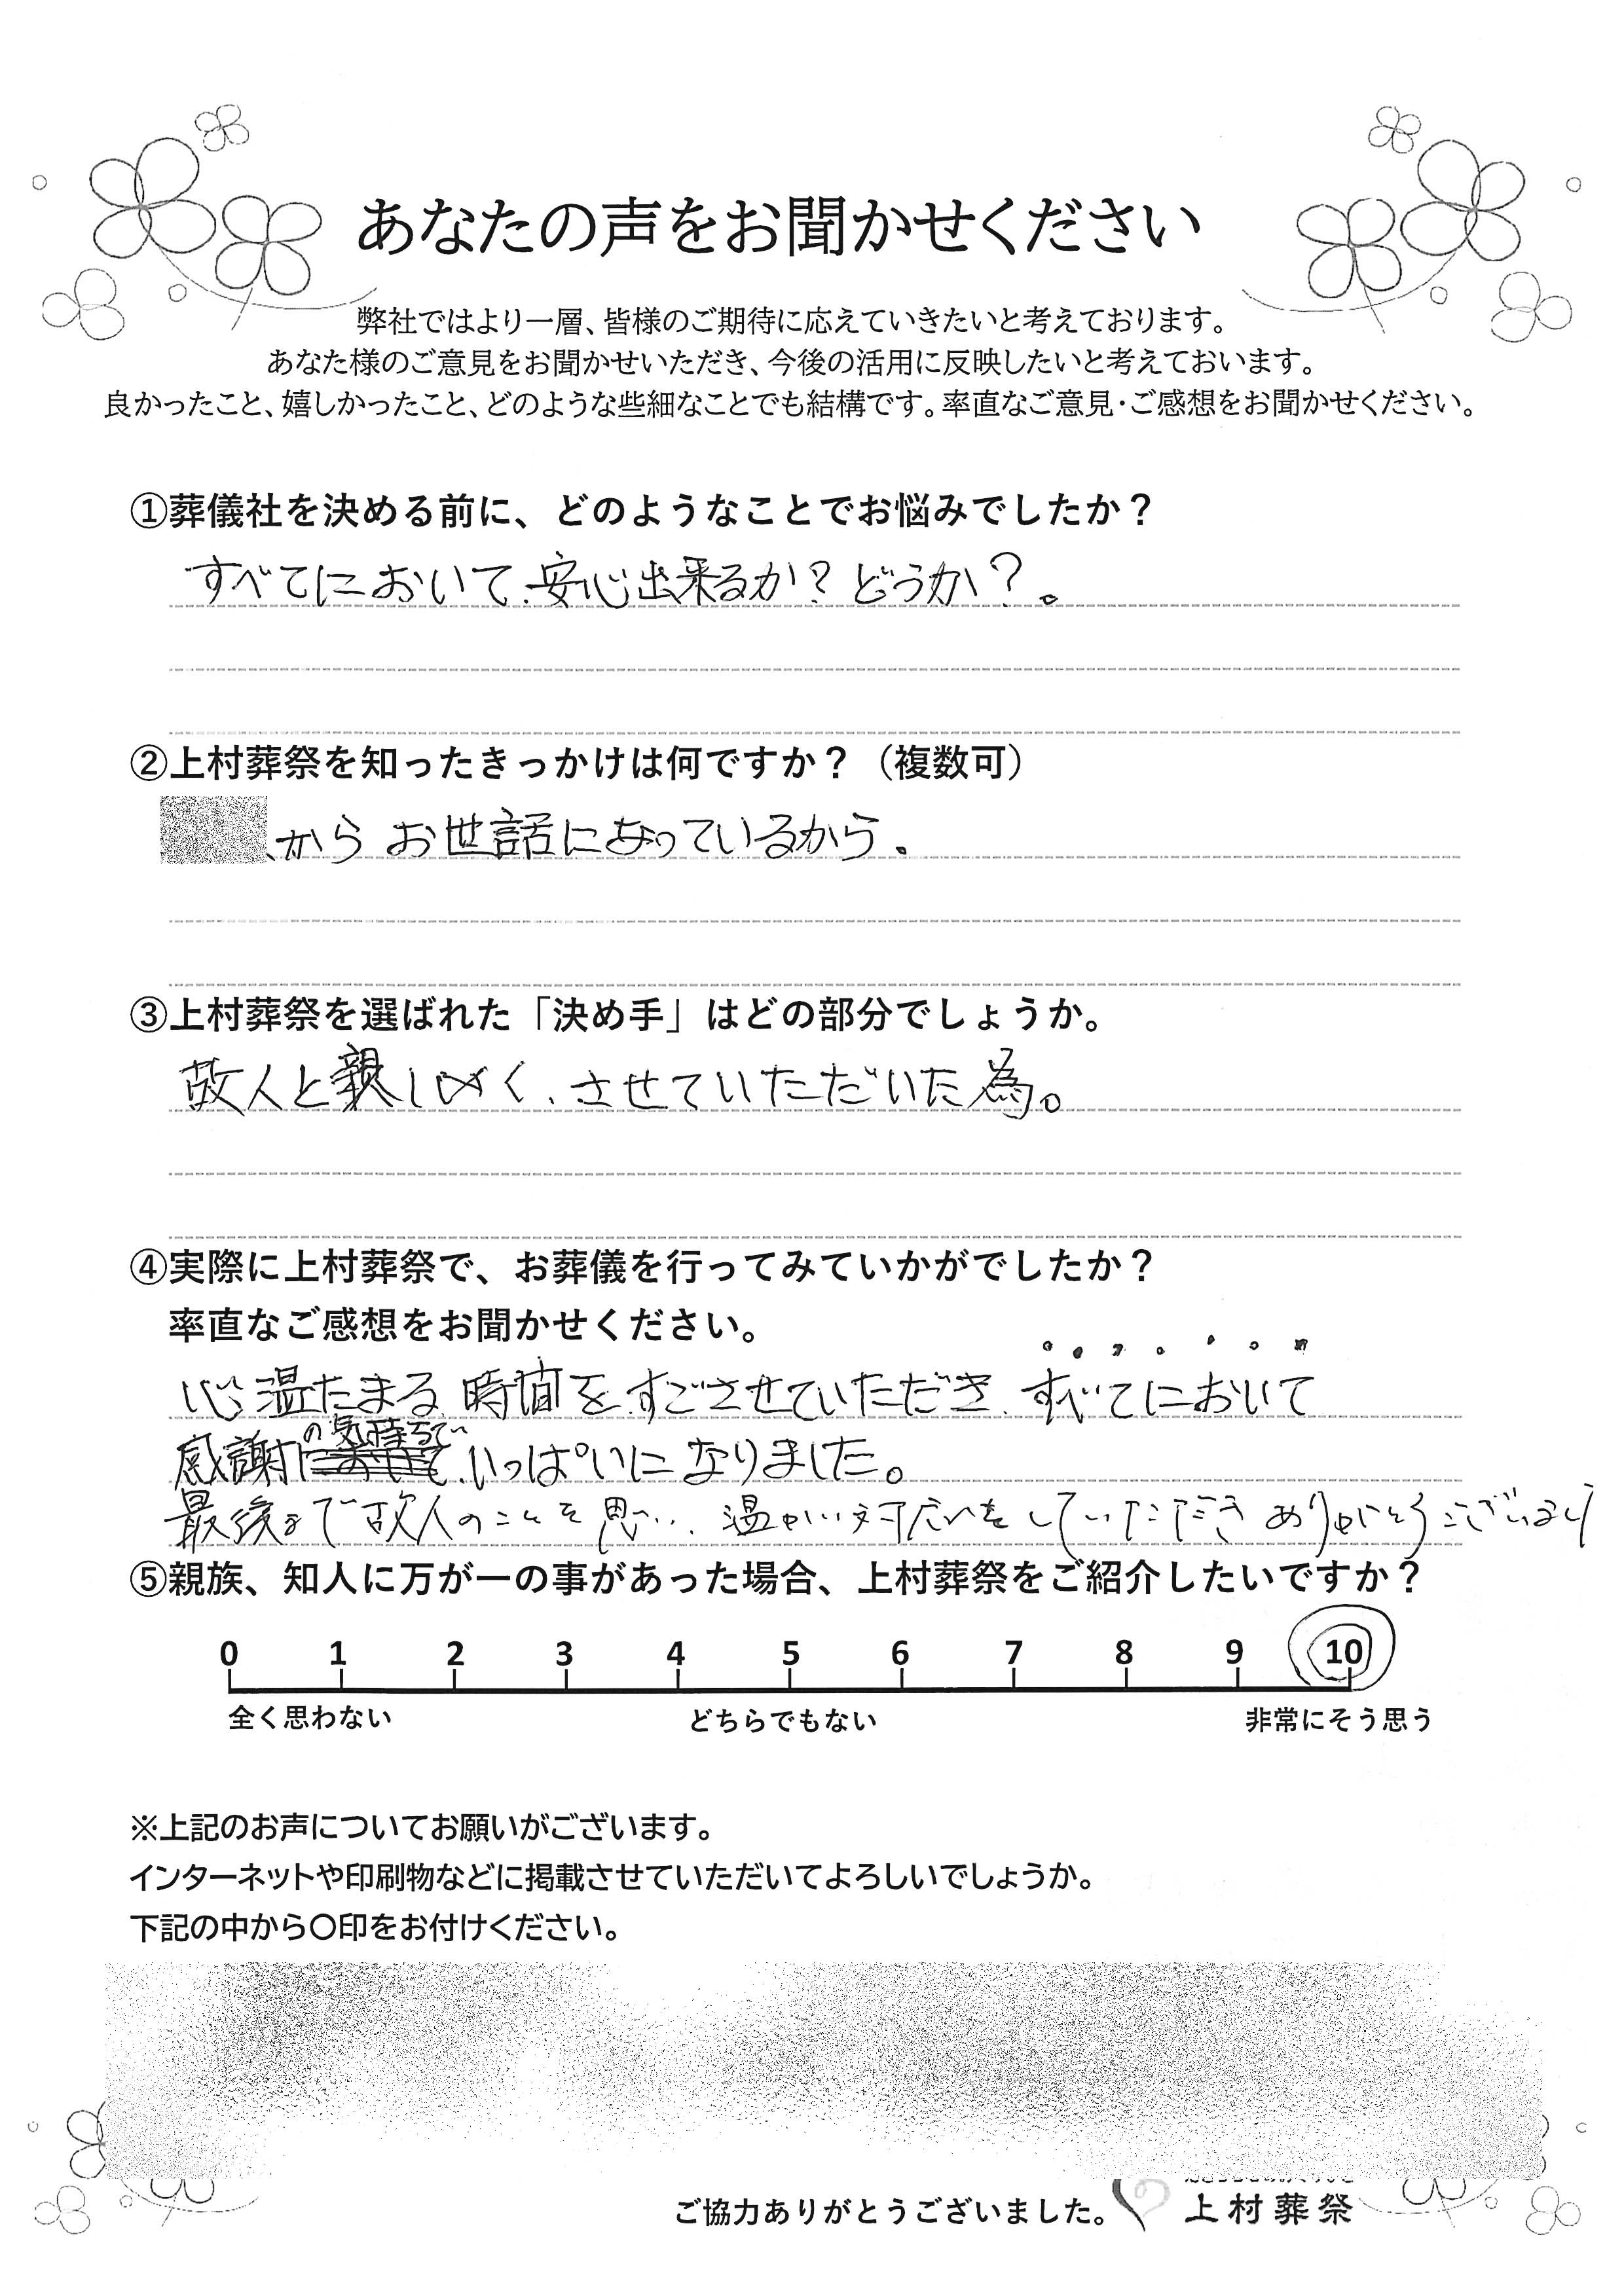 あなたの声をお聞かせください
弊社ではより一層、皆様のご期待に応えていきたいと考えております。
あなた様のご意見をお聞かせいただき、今後の活用に反映したいと考えておいます。
良かったこと、嬉しかったこと、どのような些細なことでも結構です。率直なご意見・ご感想をお聞かせください。
①葬儀社を決める前に、どのようなことでお悩みでしたか？
すべてにおいて、安心出来るか？どうか？。
②上村葬祭を知ったきっかけは何ですか？（複数可）
からお世話になっているから。
③上村葬祭を選ばれた「決め手」はどの部分でしょうか。
故人と親しく、させていただいた為。
④実際に上村葬祭で、お葬儀を行ってみていかがでしたか？
率直なご感想をお聞かせください。
心温たまる時間をすごさせていただき、すべてにおいて
感謝の気持ちでいっぱいになりました。
最後まで故人のことを思い、温かい対応をしていただきありがとうございまし
⑤親族、知人に万が一の事があった場合、上村葬祭をご紹介したいですか？
0 1 2 3 4 5 6 7 8 9 10
全く思わない どちらでもない 非常にそう思う
※上記のお声についてお願いがございます。
インターネットや印刷物などに掲載させていただいてよろしいでしょうか。
下記の中から〇印をお付けください。
ご協力ありがとうございました。 上村葬祭